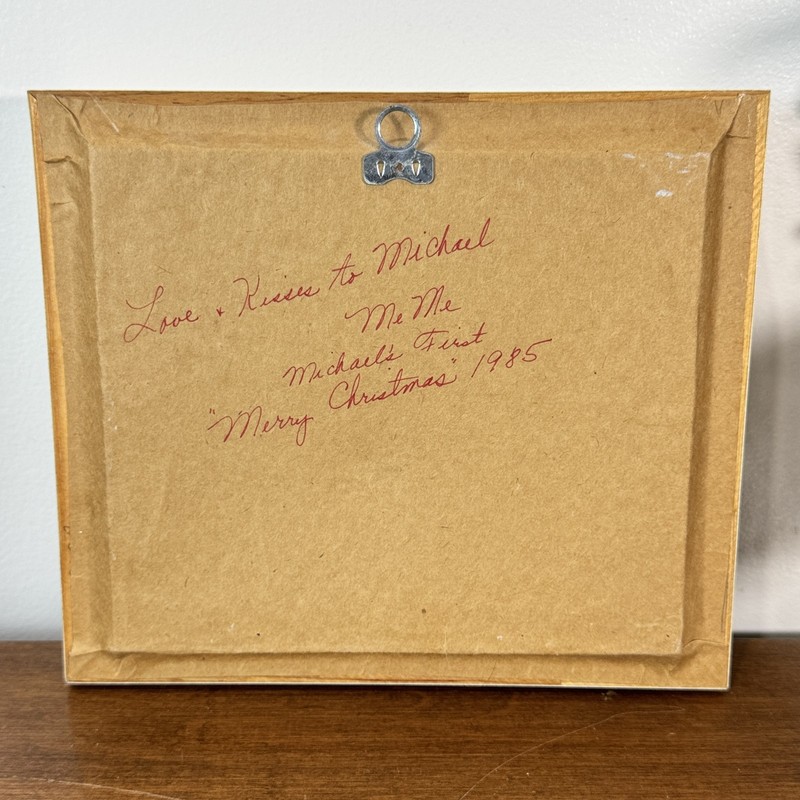 Love + Kisses to Michael
MeMe
Michael's First
"Merry Christmas" 1985